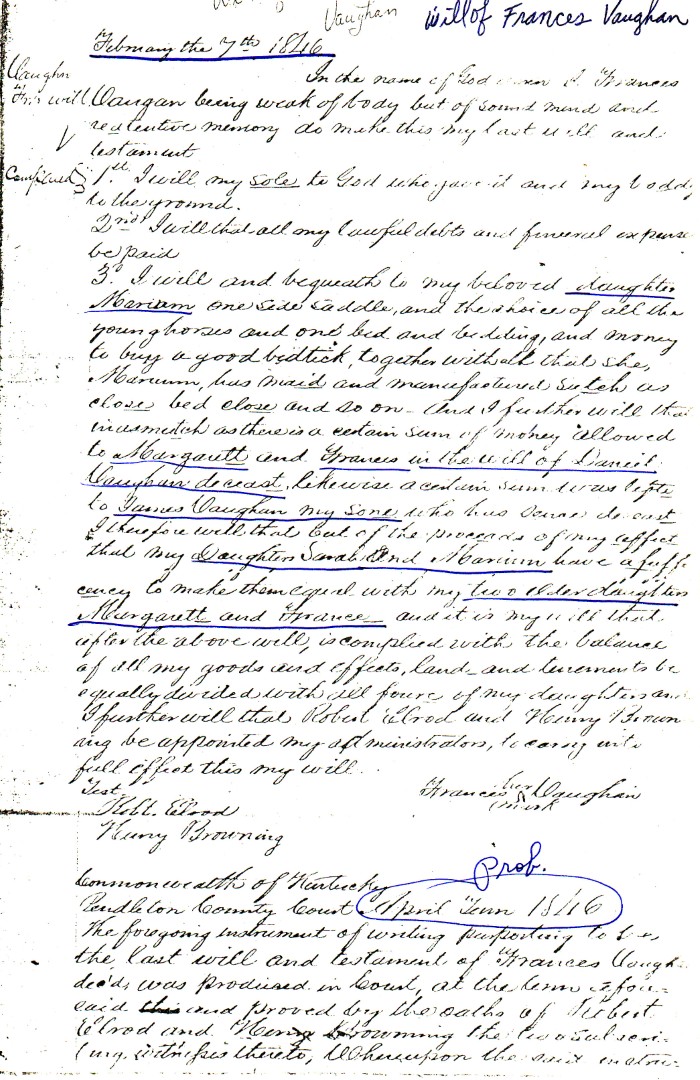 Vaughan
Will of Frances Vaughan
February the 7th 1846
Vaughn
Fr's will
In the name of God amen I. Frances
Vaugan being weak of body but of sound mind and
retentive memory do make this my last will and
testament
Compllared
1st. I will my sole to God who gave it and my boddy
to the ground.
2nd I will that all my lawful debts and funeral expense
be paid
3d. I will and bequeath to my beloved daughter
Marium one side saddle, and the choice of all the
young horses and one bed and bedding, and money
to buy a good bedtick, together with all that she,
Marium, has maid and manufactured sutch as
close bed close and so on. And I further will that
inasmutch as there is a certain sum of money allowed
to Margarett and Frances in the will of Daniel
Vaughan deceast, likewise a certain sum was lefte
to James Vaughan my sone who has sense deceast
I therefore will that out of the proceads of my effect
that my Daughters Sarah And Marium have a suffi
cency to make them equal with my two elder daughters
Margarett and France and it is my will that
after the above will, is complied with the balance
of all my goods and effects, land and tenements be
equally divided with all foure of my daughters and
I further will that Robert Elrod and Henry Brown
ing be appointed my administrators, to carry into
full effect this my will.
Test
Frances her mark Vaughan
Robt. Elrod
Henry Browning
prob.
Commonwealth of Kentucky
Pendleton County Court April Term 1846
The foregoing instrument of writing purporting to be
the last will and testament of Frances Vaugh
decd, was produced in Court, at the term afore
said this and proved by the oaths of Robert
Elrod and Henry Browning the two subscri
ing witnesses thereto, Whereupon the said instru